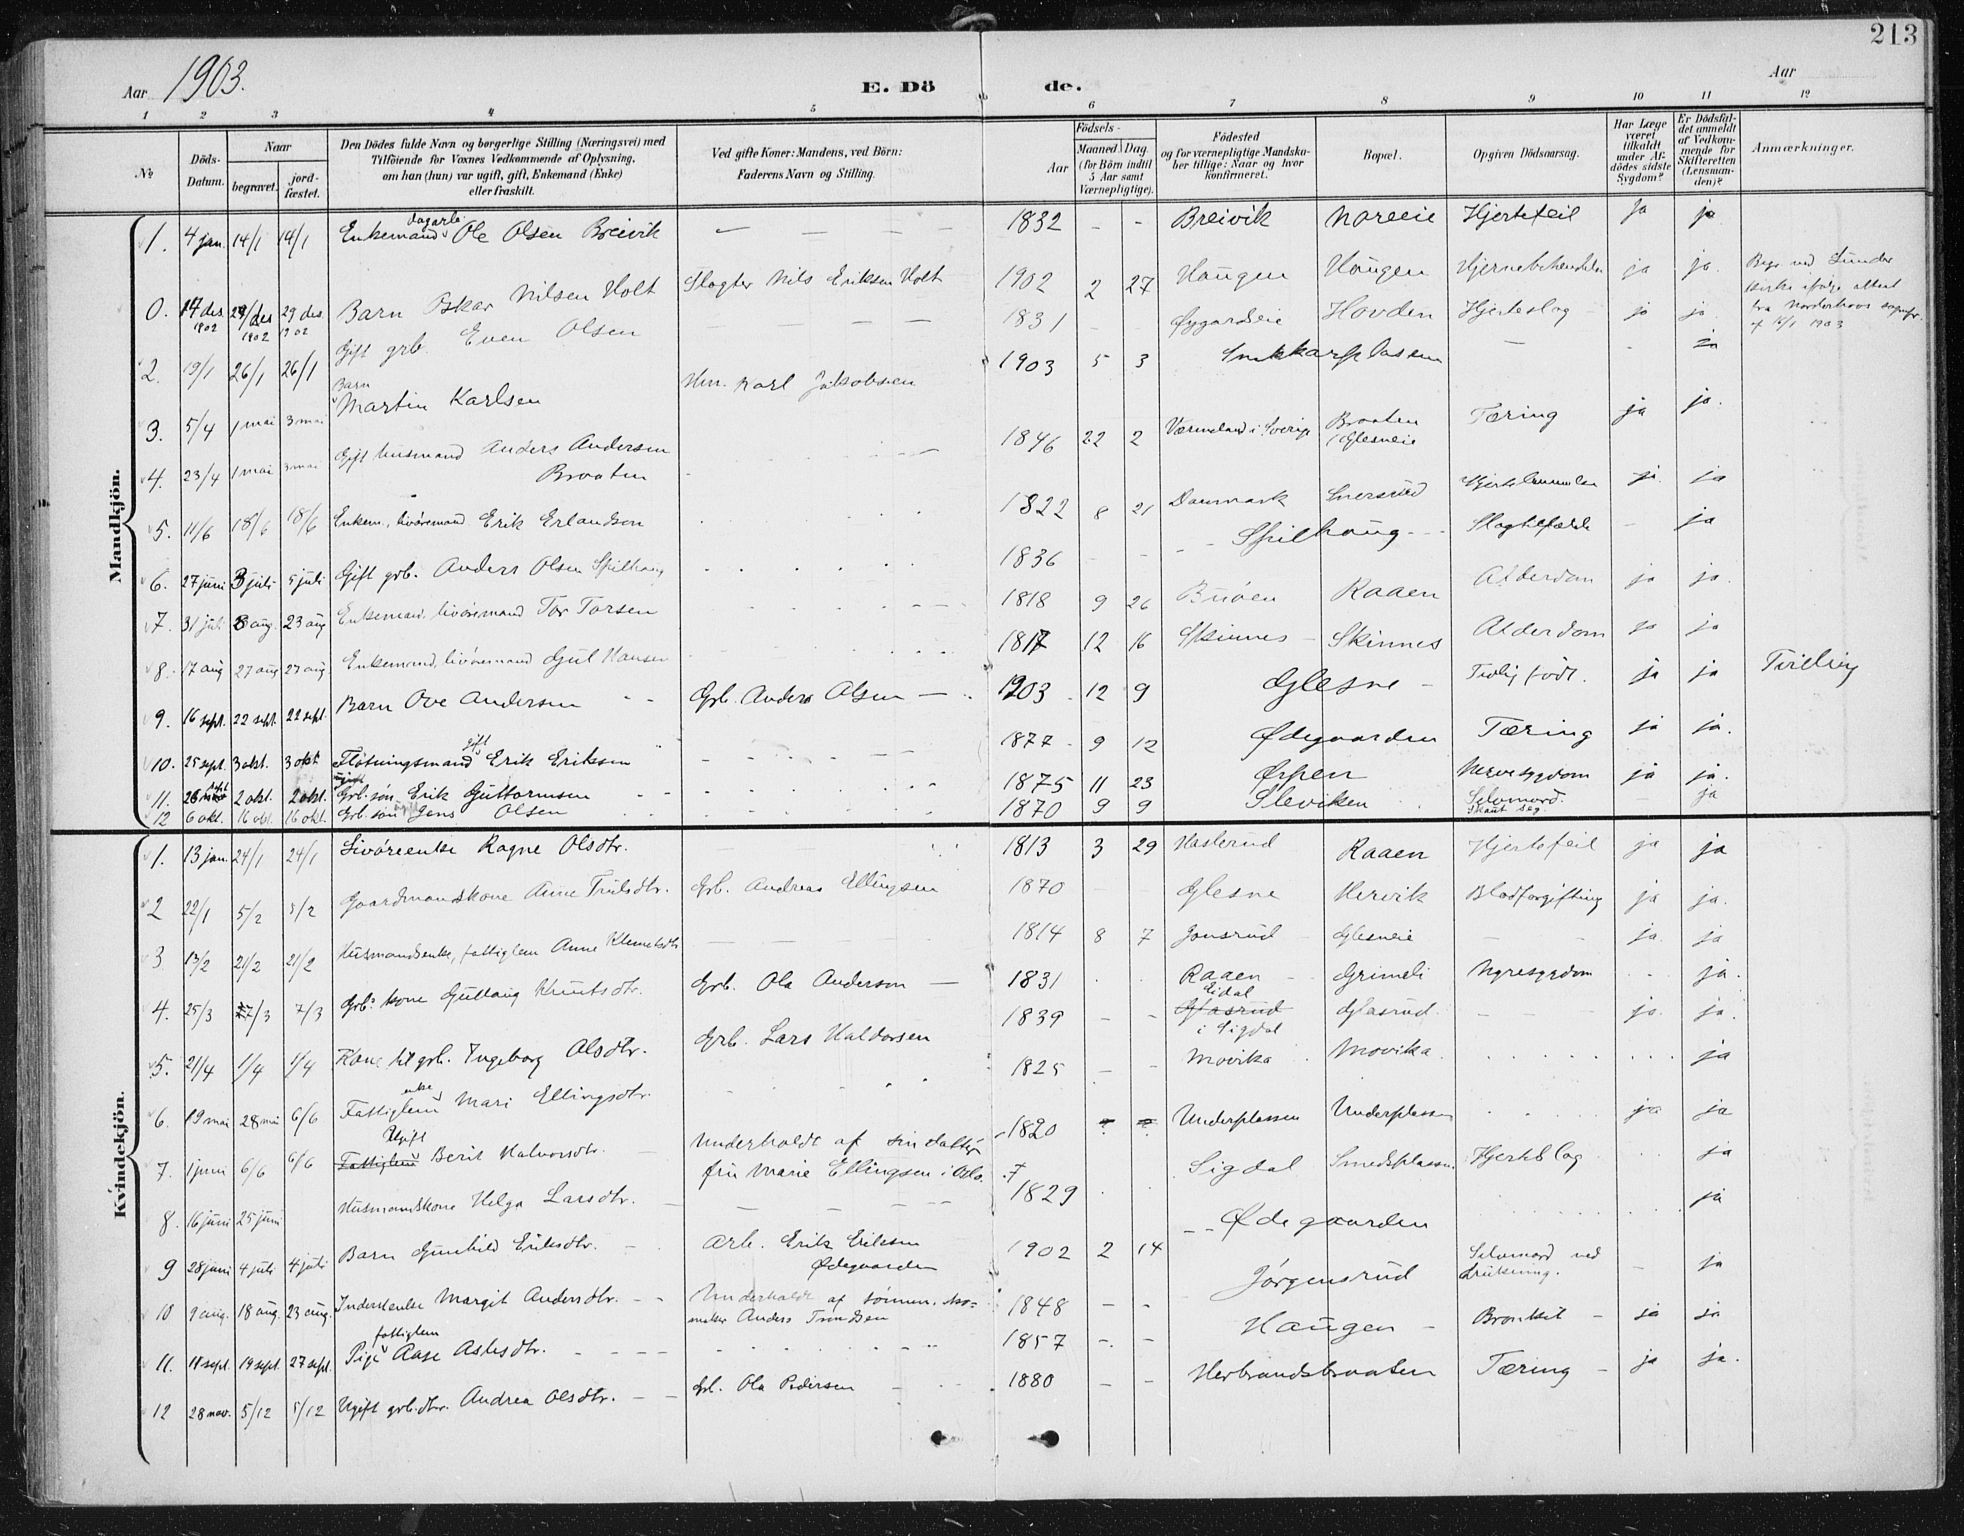 213
Aar 1903.
E. Dö de.
Aar
1 2 3 4 5 6 7 8 9 10 11 12
No
Döds-Datum.
Naar
begravet. jord-fæstet.
Den Dödes fulde Navn og borgerlige Stilling (Næringsvei) med
Tilföiende for Voxnes Vedkommende af Oplysning,
om han (hun) var ugift, gift, Enkemand (Enke)
eller fraskilt.
Ved gifte Koner: Mandens, ved Börn:
Faderens Navn og Stilling.
Födsels-
Aar
Maaned. Dag.
(for Börn indtil
5 Aar samt
Værnepligtige).
Födested
og for værnepligtige Mandska-
ber tillige: Naar og hvor
konfirmeret.
Bopæl.
Opgiven Dödsaarsag.
Har Læge
været
tilkaldt
under Af-
dödes sidste
Sygdom?
Er Dödsfal-
det anmeldt
af Vedkom-
mende for
Skifteretten
(Lensman-
den)?
Anmærkninger.
Mandkjön.
1. 4 jan. 14/1 14/1 Enkemand dagarb. Ole Olsen Breivik — — — 1832 - - Breivik Noreeie Hjertefeil ja ja
0. 17 des 1902 29/des 1902 29 des 1902 Barn Oskar Nilsen Holt Slagter Nils Eriksen Holt 1902 2 27 Haugen Haugen ja ja. Begr. ved Lunder kirke ifølge attest fra Norderhovs sognepr. af 1903
2. 19/1 26/1 26/1 Gift grb. Even Olsen — — — 1831 - - Øygardseie Hovden Hjerteslag ja ja
3. 5/4 1 mai 3 mai Barn Martin Karlsen Hm. Karl Jakobsen 1903 5 3 Snekkarplassen — -
4. 23/4 1 mai 3 mai Gift husmand Anders Andersen Braaten 1846 22 2 Værmeland i Sverige Braaten Glesneeie Tæring ja ja.
5. 11/6 18/6 18/6 Enkem., livøremand Erik Erlandson 1822 8 21 Danmark Snersrud Hjertelammelse ja. ja
6. 27 juni 3 juli 5 juli Gift grb. Anders Olsen Spilhaug 1836 - - Spilhaug Slagtilfælde — ja
7. 31 juli 8 aug. 23 aug Enkemand, livøremand Tor Torsen 1818 9 26 Buøen Raaen Alderdom ja ja.
8. 17 aug 27 aug 27 aug Enkemand, livøremand Gul Hansen 1817 12 16 Skinnes Skinnes Alderdom ja ja
9. 16 sept. 22 sept. 22 sept. Barn Ove Andersen Grb. Anders Olsen 1903 12 9 Glesne Tidlig født. ja ja Tvilling
10. 25 sept. 3 okt. 3 okt. Fløtningsmand gift Erik Eriksen 1877 9 12 Ødegaarden Tæring ja ja.
11. 26 sept 2 okt. 2 okt. ugift Grb. søn Erik Guttormsen 1875 11 23 Ørpen Nervesygdom ja ja.
12 6 okt. 16 okt. 16 okt. Grb. søn ugift Jens Olsen 1870 9 9 Sleviken Selvmord. Skaut seg. — ja
Kvindekjön.
1. 13 jan. 24/1 24/1 Livøreenke Ragne Olsdtr. 1813 3 29 Haslerud Raaen Hjertefeil ja ja
2 22/1 5/2 5/2 Gaardmandskone Anne Trulsdtr. Grb. Andreas Ellingsen 1870 - Glesne Hervik Blodforgiftning ja ja.
3 13/2 21/2 21/2 Husmandsenke, fattiglem Anne Klemetsdtr — — — 1814 8 7 Jonsrud Glesneeie - - ja. ja
4. 25/3 7/3 7/3 Grb. kone Gullaug Knutsdtr. Grb. Ola Anderson — 1831 Raaen Grimeli Nyresygdom ja.
5. 21/4 1/4 1/4 Kone til grb. Ingeborg Olsdtr. Grb. Lars Haldorsen 1839 - - Glasrud Eidal i Sigdal Glasrud - - ja. ja.
6. 19 mai 28 mai 6/6 Fattiglem enke Mari Ellingsdtr. 1825 - - Movika Movika ja
7. 1 juni 6/6 6/6 Fattiglem Ugift Berit Halvorsdtr. Underholdt af sin datter fru Marie Ellingsen i Oslo. 1820 Underplassen Underplassen ja ja
8. 16 juni 25 juni Husmandskone Helga Larsdtr. — — — 1829 Sigdal Smedsplassen Hjerteslag ja
9 28 juni 4 juli 4 juli Barn Gunhild Eriksdtr. Arb. Erik Eriksen Ødegaarden 1902 2 14 Ødegaarden ja
10 9 aug. 18 aug. 23 aug. Inderstenke Margit Andersdtr. Underholdt af sønnen, Anders Trondsen 1848 - - Jørgensrud Selvmord ved drukning. — ja
11. 11 sept. 19 sept. 27 sept. Pige fattiglem Aase Aslesdtr. 1857 - - Haugen Bronkit ja ja
12 28 nov. 5/12 5/12 Ugift grb.dtr. Andrea Olsdtr. Grb. Ola Pedersen 1880 - - Herbrandsbraaten Tæring ja ja.